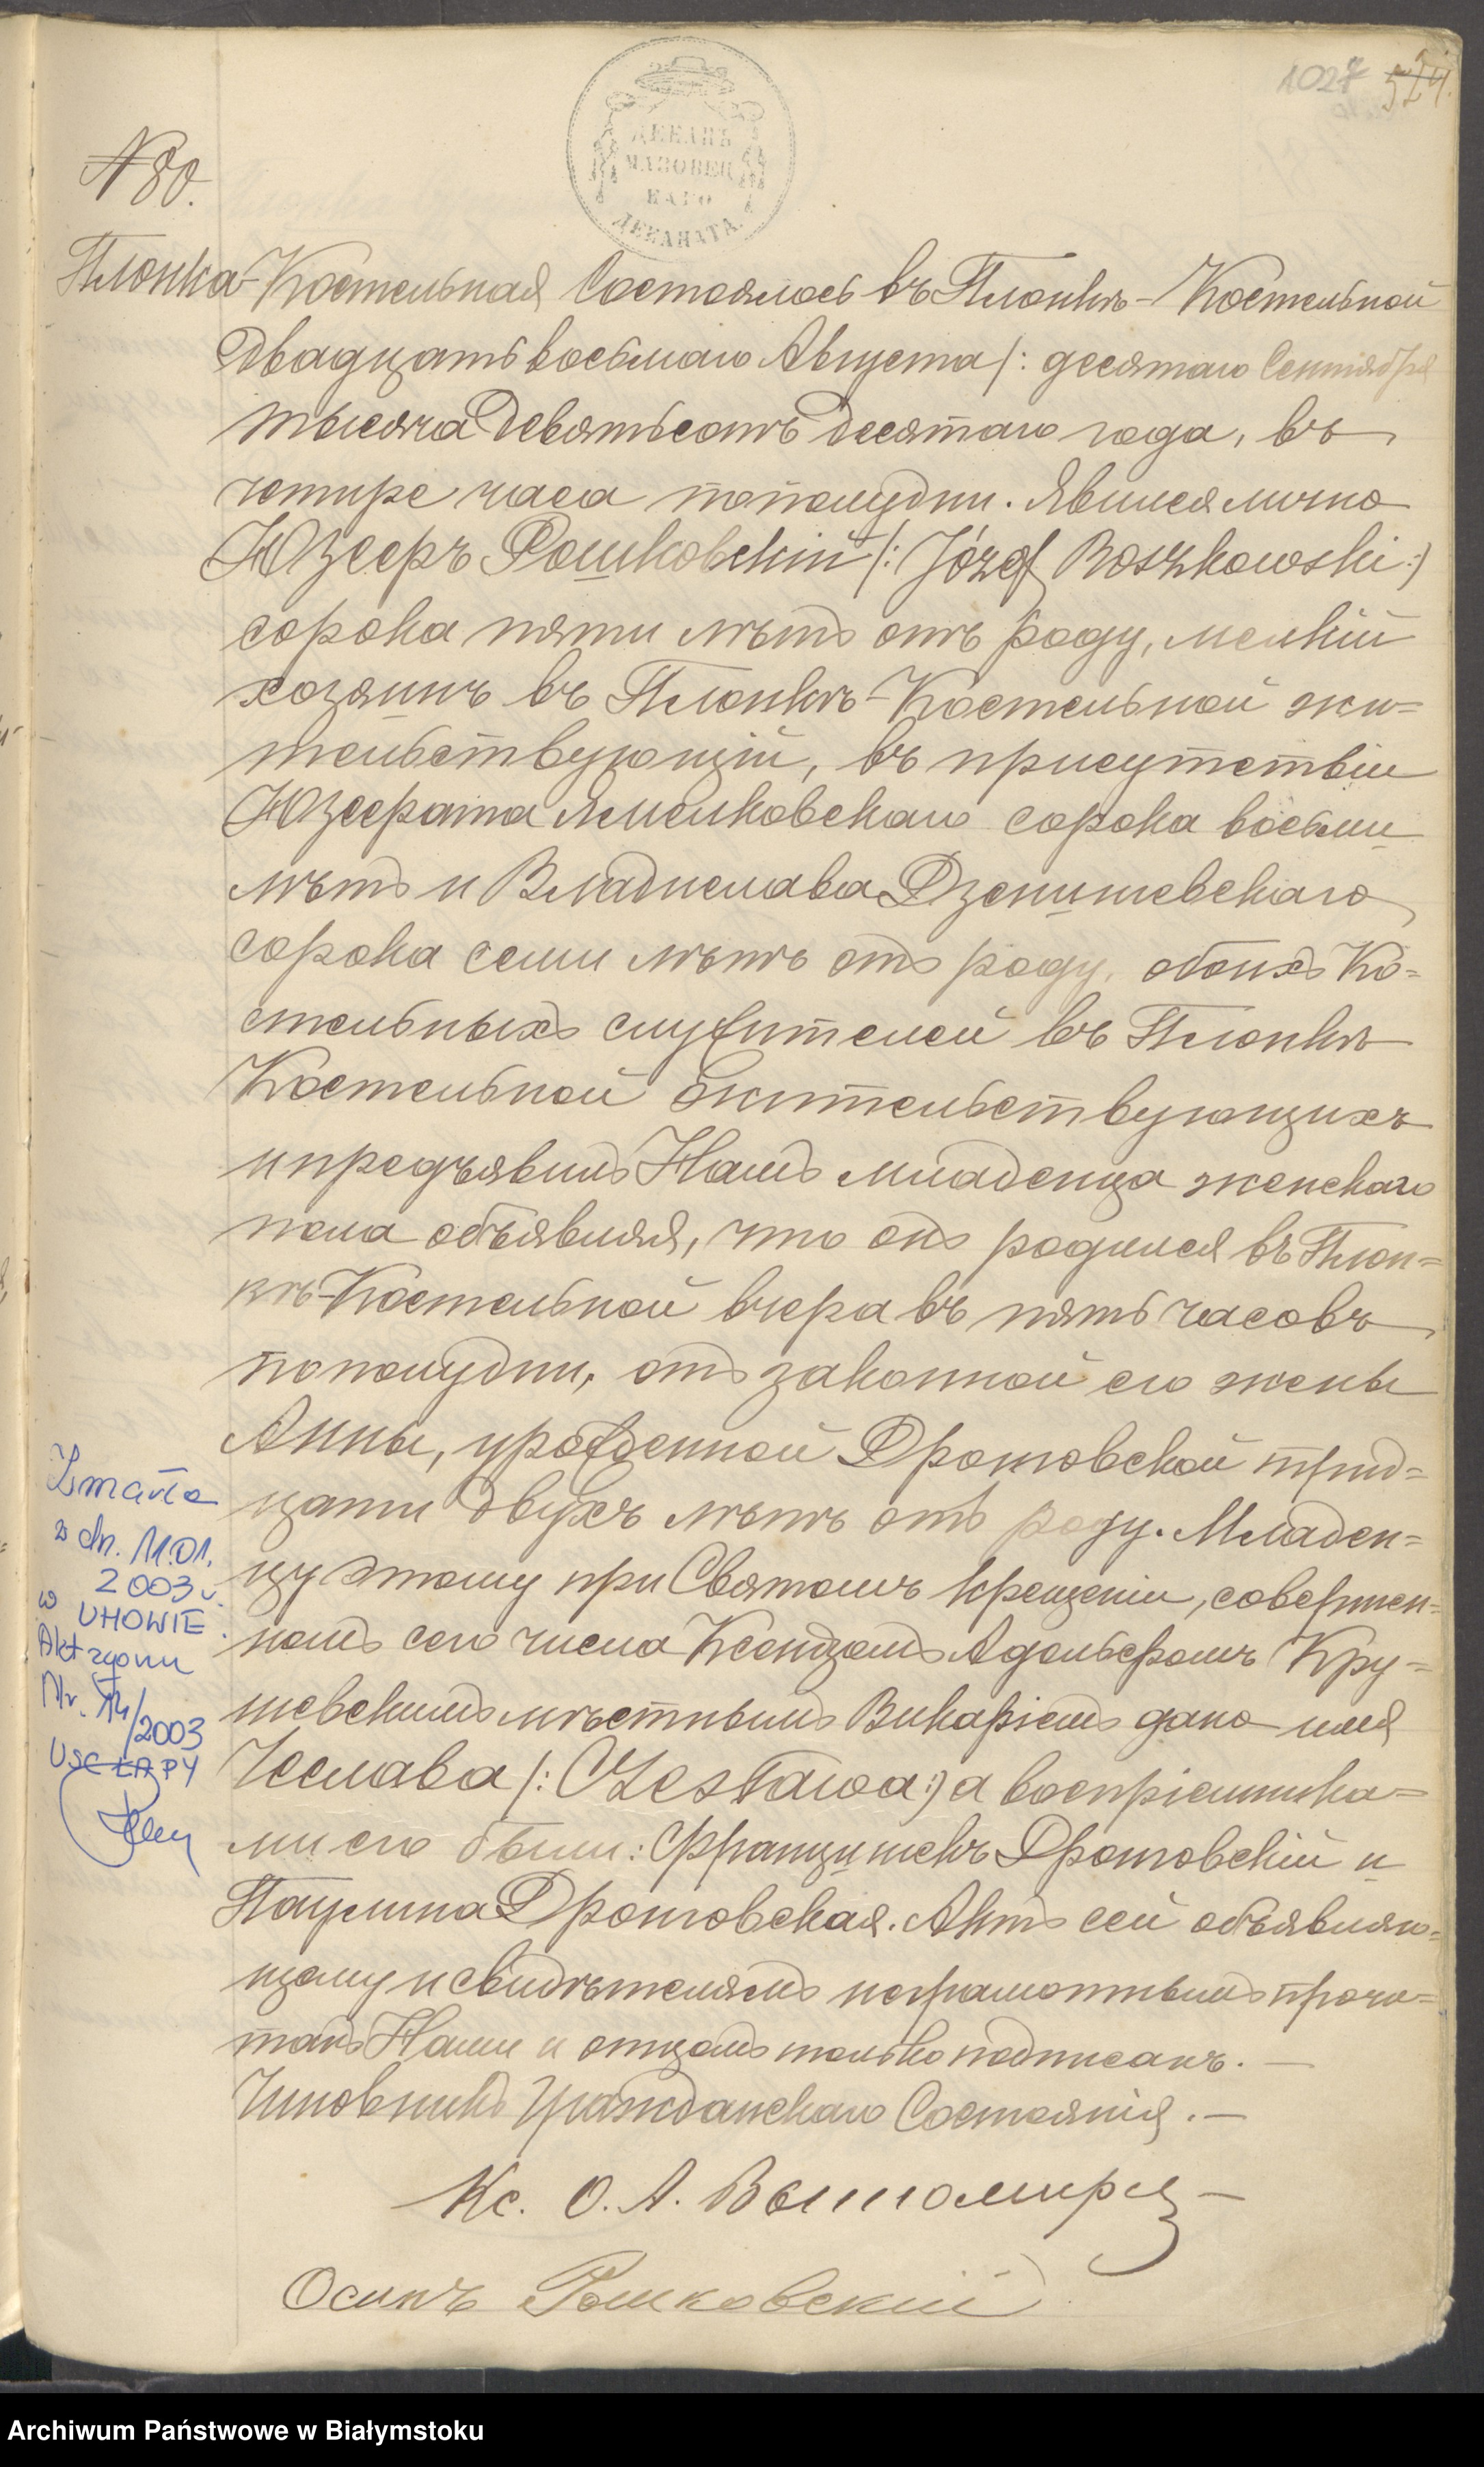 1027 524.
ДЕКАНЪ
МАЗОВЕЦ
КАГО
ДЕКАНАТА.
N 80.
Плонка-Костельная Состоялось въ Плонкѣ-Костельной
двадцать восьмаго Августа /: десятаго Сентября
тысяча девятьсотъ десятаго года, въ
четыре часа пополудни. Явился лично
Юзефъ Рошковскій /: Józef Roszkowski :/
сорока пяти лѣтъ отъ роду, мелкій
хозяинъ въ Плонкѣ-Костельной жи=
тельствующій, въ присутствіи
Юзефата Ямелковскаго сорока восьми
лѣтъ и Владислава Дзенишевскаго
сорока семи лѣтъ отъ роду, обоихъ Ко=
стельныхъ служителей въ Плонкѣ
Костельной жительствующихъ
и предъявилъ Намъ младенца женскаго
пола объявляя, что онъ родился въ Плон=
кѣ-Костельной вчера въ пять часовъ
пополудни, отъ законной его жены
Анны, урожденной Дротовской трид=
цати двухъ лѣтъ отъ роду. Младен=
цу этому при Святомъ крещеніи, совершен=
номъ сего числа Ксендзомъ Адольфомъ Кру=
шевскимъ мѣстнымъ Викаріемъ дано имя
Чеслава /: Czesława :/ а воспріемника=
ми его были: Францишекъ Дротовскій и
Паулина Дротовская. Актъ сей объявляю=
щему и свидѣтелямъ неграмотнымъ прочи=
танъ Нами и отцомъ только подписанъ. —
Чиновникъ Гражданскаго Состоянія. —
Кс. О. А. —
Осипъ Рошковскій
Zmarła
w dn. 11.01.
2003 r.
w UHOWIE.
Akt zgonu
Nr. 14/2003
USC ŁAPY
Archiwum Państwowe w Białymstoku